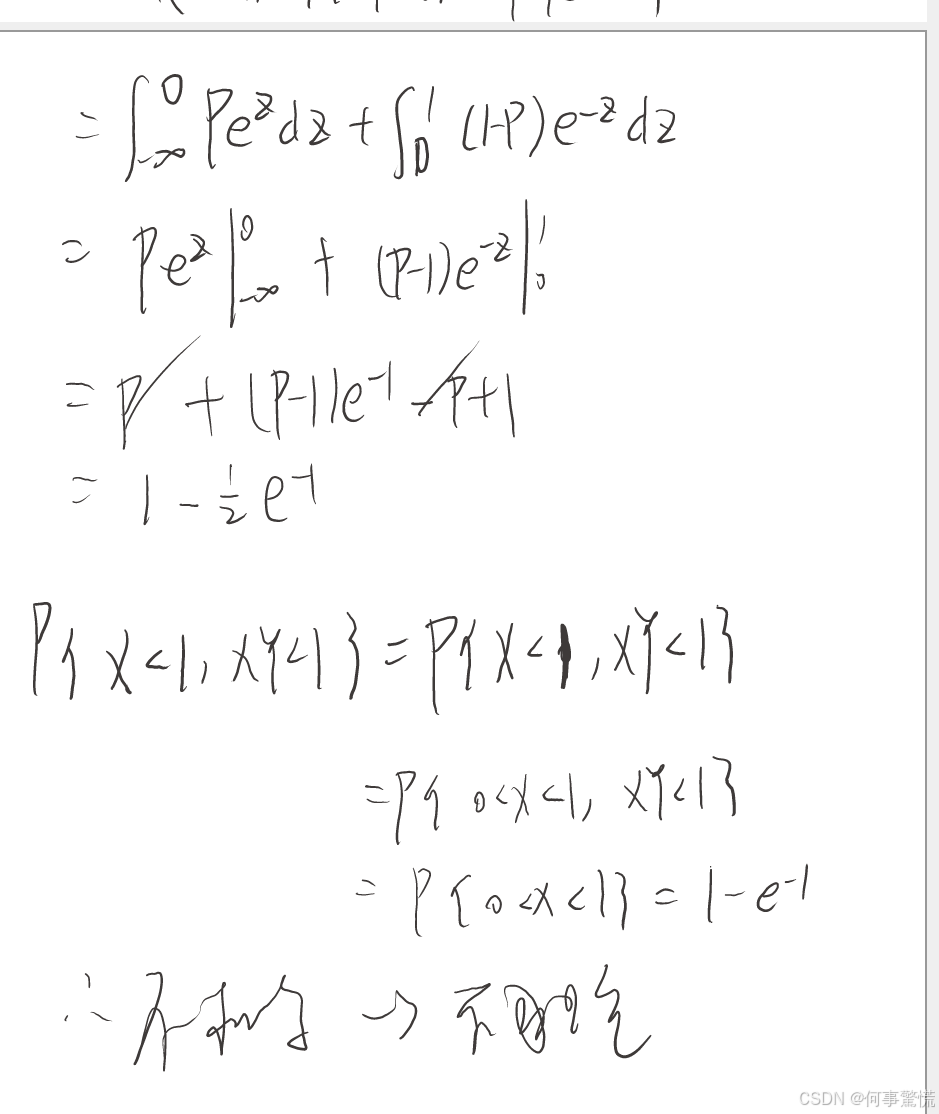 = ∫_{-∞}^{0} Pe^z dz + ∫_{0}^{1} (1-P)e^{-z} dz
= Pe^z |_{-∞}^{0} + (P-1)e^{-z} |_{0}^{1}
= P + (P-1)e^{-1} - P + 1
= 1 - \frac{1}{2} e^{-1}
P{X<1, XY<1} = P{X<1, XY<1}
= P{0<X<1, XY<1}
= P{0<X<1} = 1 - e^{-1}
∴ 不 → 不
CSDN @何事驚慌